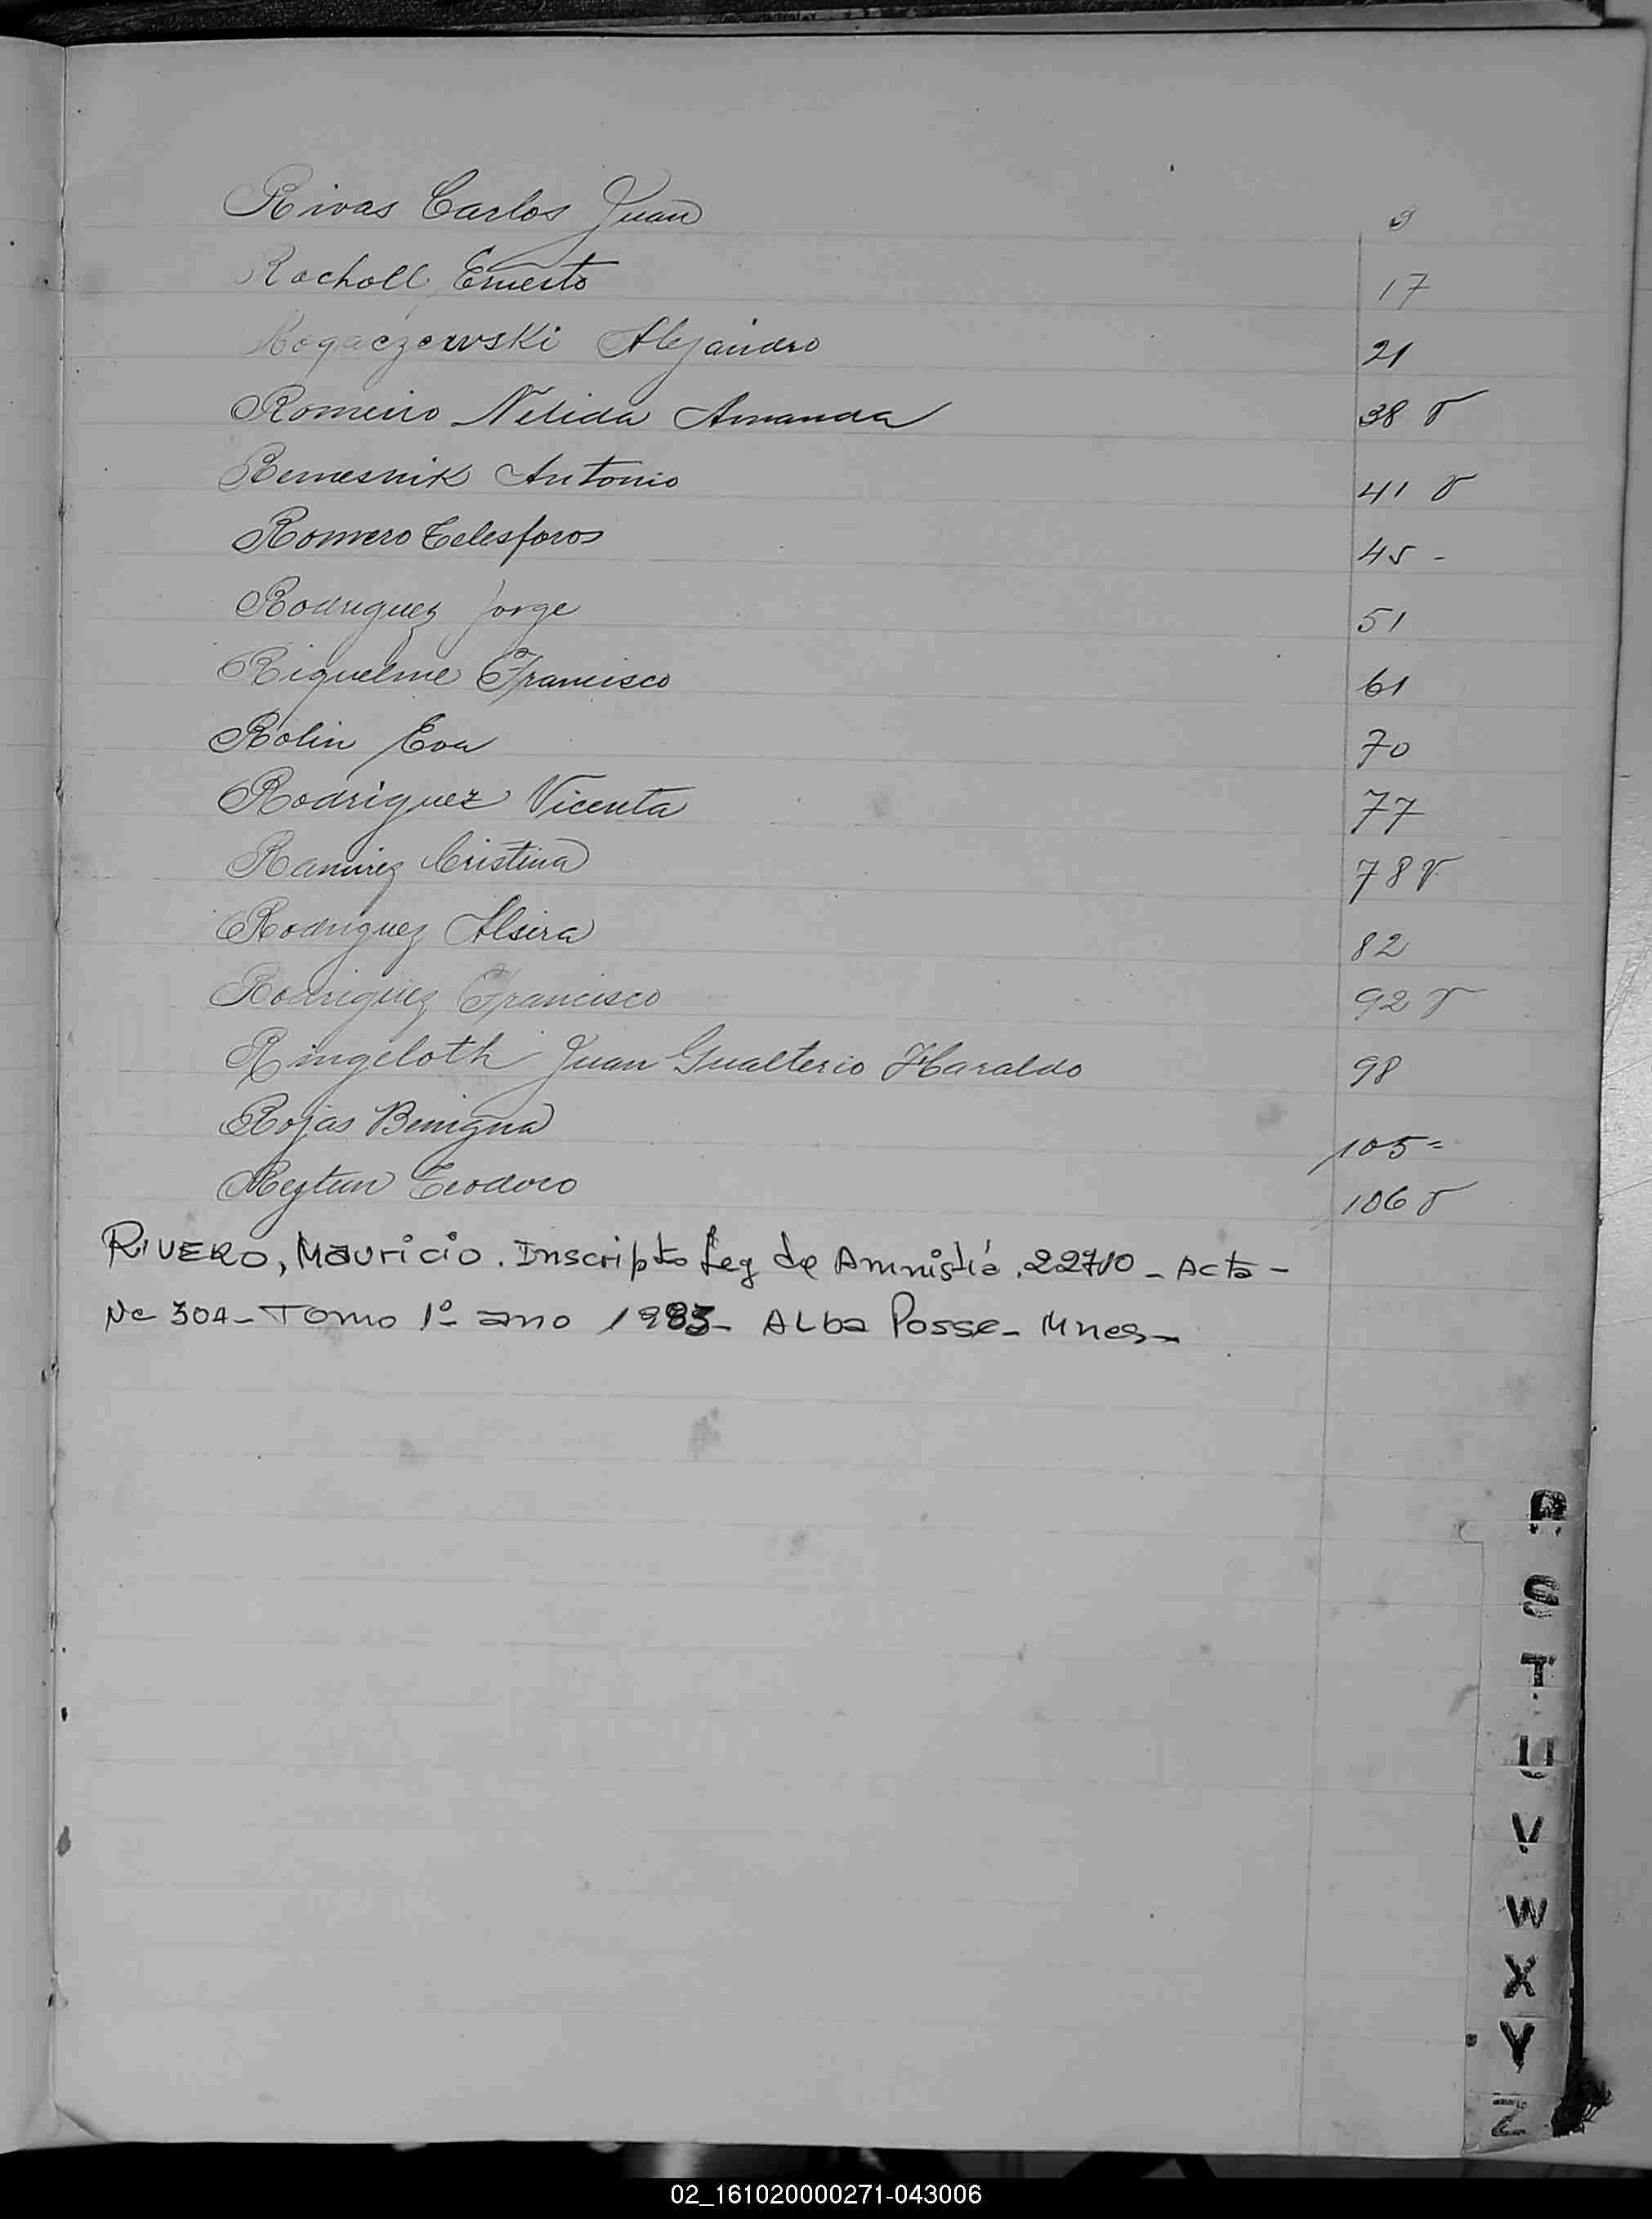 Rivas Carlos Juan 9
Rocholl Ernesto 17
Rogaczewski Alejandro 21
Romeiro Nelida Amanda 38 v
Remesnik Antonio 41 v
Romero Telesforos 45 -
Rodriguez Jorge 51
Riquelme Francisco 61
Rolin Eva 70
Rodriguez Vicenta 77
Ramirez Cristina 78 v
Rodriguez Alsira 82
Rodriguez Francisco 92 v
Ringeloth Juan Gualterio Haraldo 98
Rojas Benigna 105 =
Teodoro 106 v
RIVERO, Mauricio. Inscripto Ley de Amnistía. 22710 - Acta -
Nº 304 - Tomo 1º - ano 1983 - Alba Posse - Mnes -
R
S
T
U
V
W
X
Y
Z
02_161020000271-043006